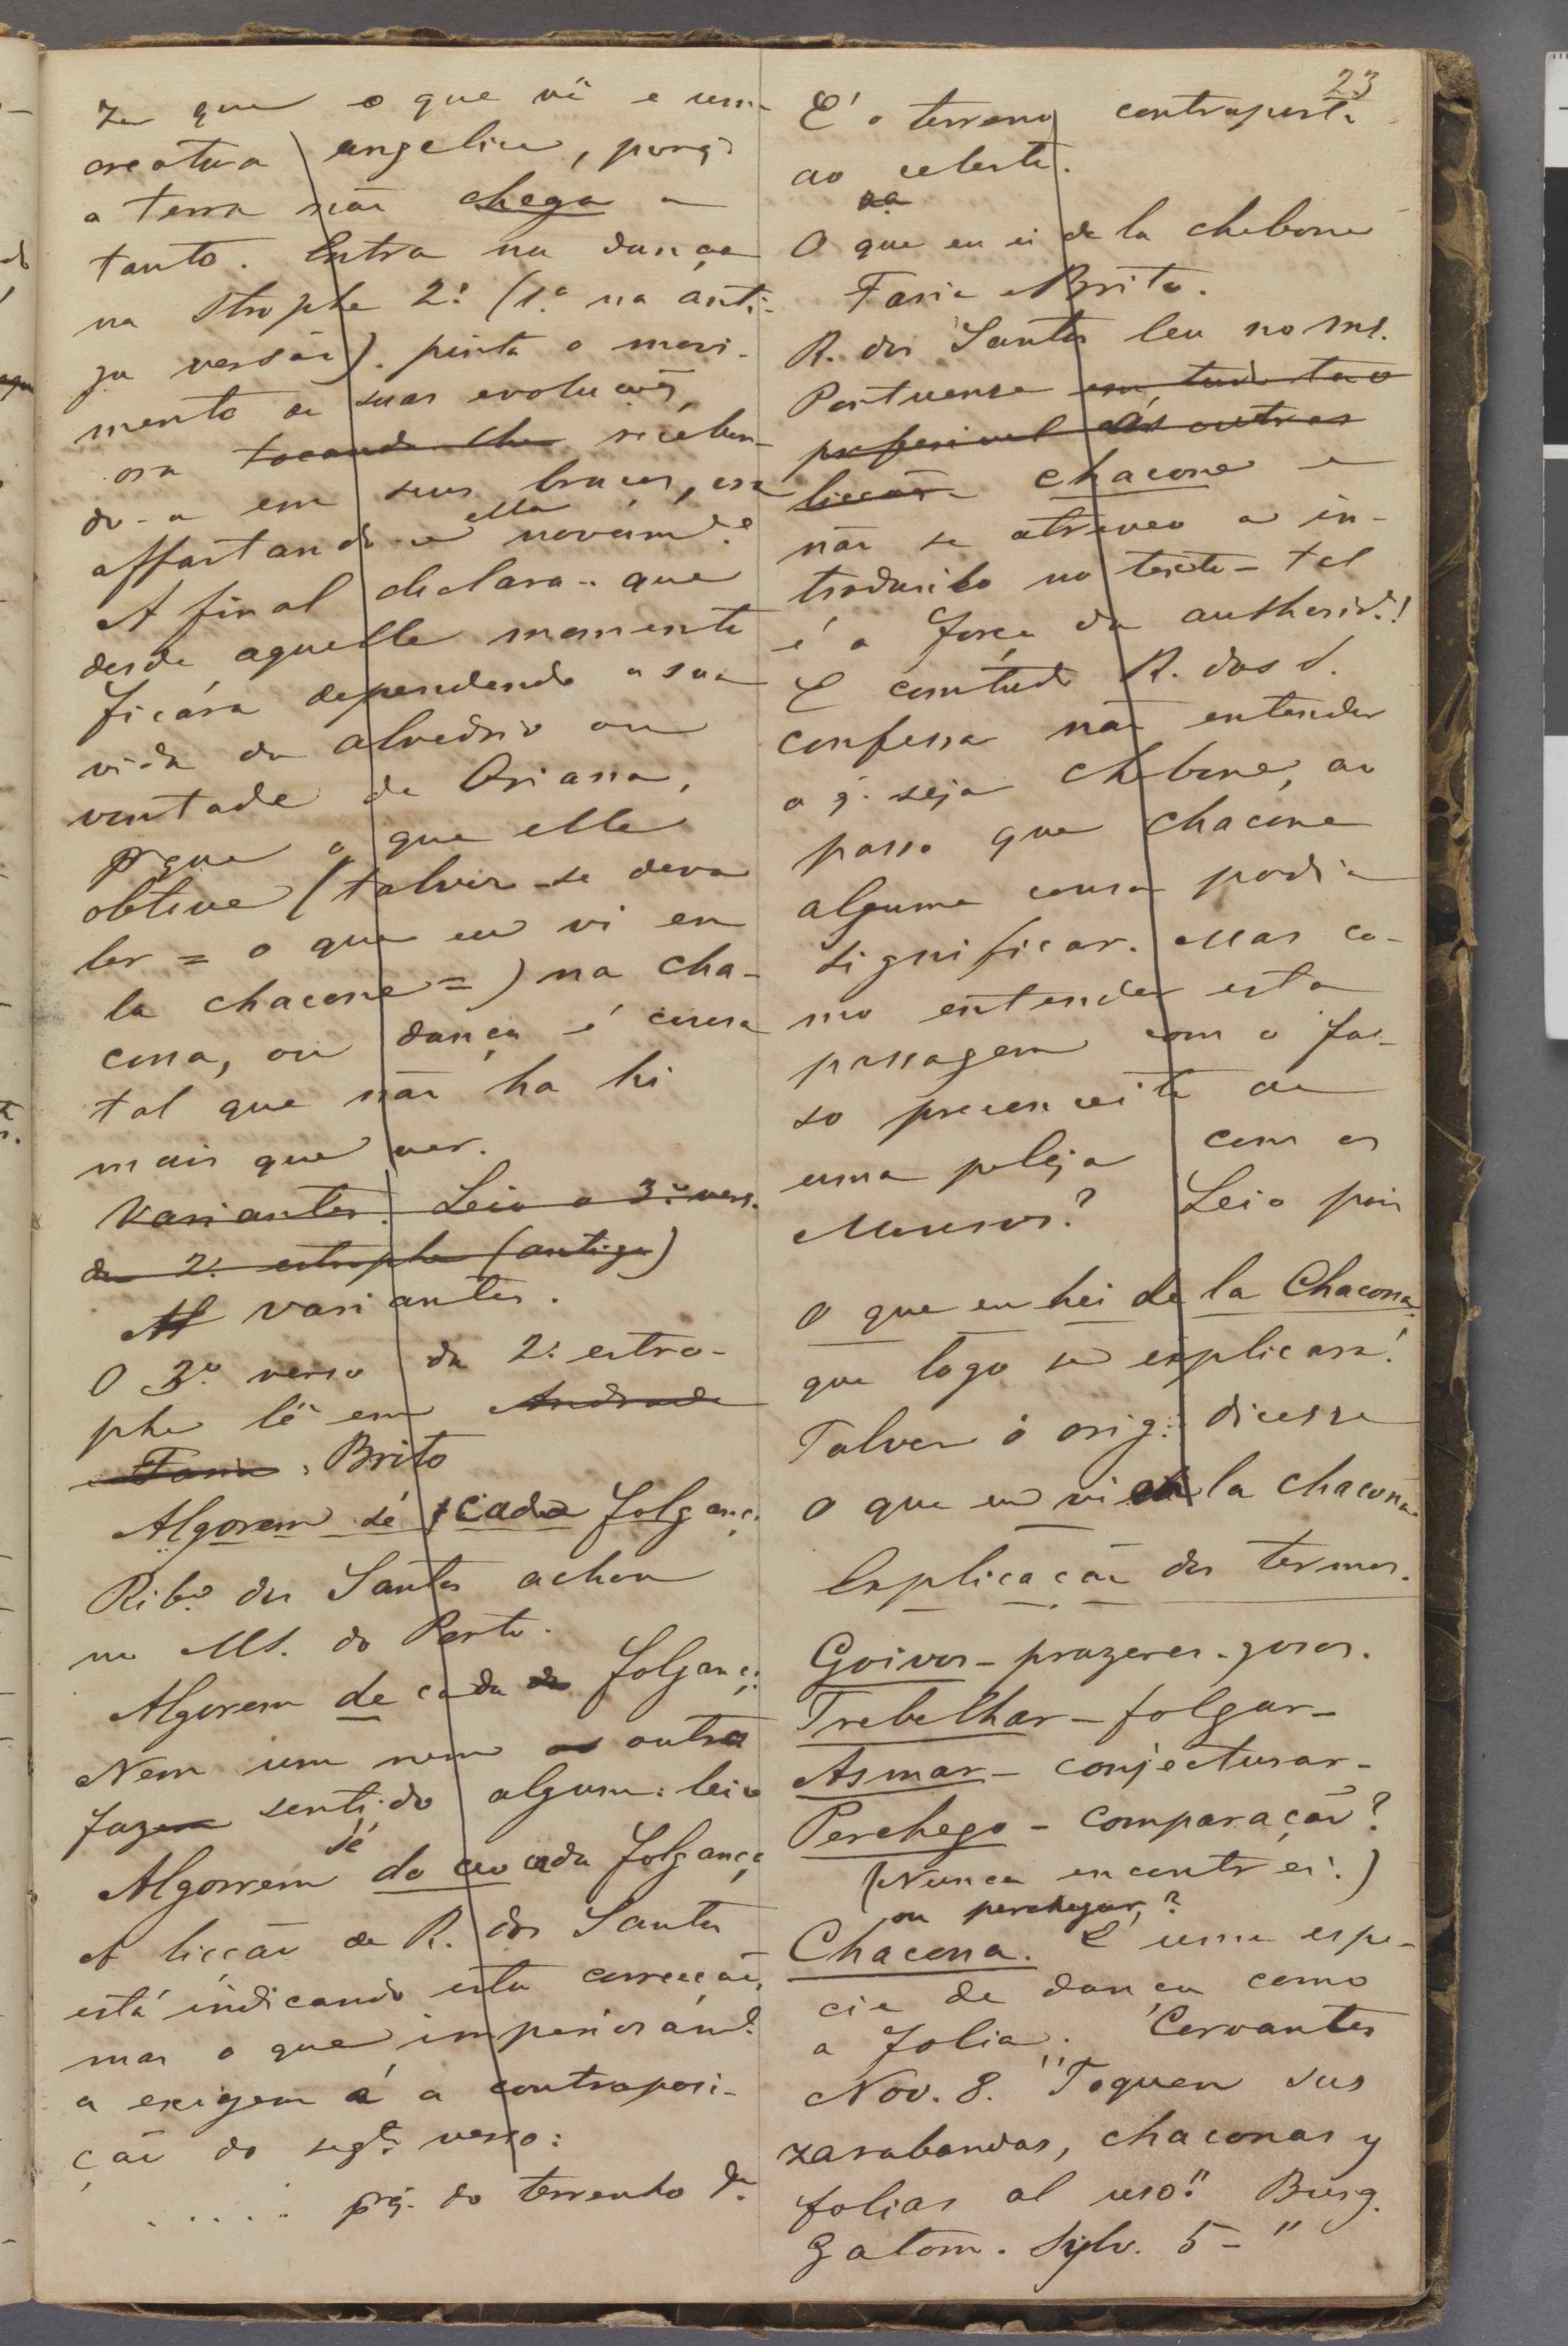 23
ze que o que vê e uma
creatura angelica, porq.
a terra não chega a
tanto. Entra na dança
na Strophe 2.ª (1.ª na anti-
ga versão). pinta o movi-
mento de suas evoluções,
ora tocando-lhe receben-
do-a em seus braços, ora
affastando-se ella novam.e
A final declara-. que
desde aquelle momento
ficára dependendo a sua
vida do alvedrio ou
vontade de Oriana,
pr que o que elle
obtive (talvez-se deva
ler = o que eu vi en
la chacone =) na cha-
cona, ou dança é cousa
tal que não ha hi
mais que ver.
Variantes. Leio o 3.º vers.
da 2.ª estrophe (antiga)
Variantes.
O 3.º verso da 2.ª estro-
phe lê em Andrade
Faria, Brito
Algorem sé cada folganç.
Rib.º dos Santos achou
no MS. do Porto.
Algorem de cada da folganç.
Nem um nem outro
fazem sentido algum: leio
Algorrem sé do ceo cada folgança
A licção de R. dos Santos
está indicando esta correcção,
mas o que imperiosam.e
a exigem é a contraposi-
ção do seg.te verso:
..... prq. do terrenho d.
E' o terreno contraposto
ao celeste.
O que eu ei de la chebone
Faria e Brito.
R. dos Santos leu no ms.
Portuense em tudo tão
preferivel ás outras
licções chacone e
não se atreveo a in-
troduzilo no texto - tal
é a força da authorid.e!
E comtudo R. dos S.
confessa não entender
o q. seja chebone, ao
passo que chacone
alguma cousa podia
significar. Mas co-
mo entender esta
passagem com o fal-
so preconceito de
uma peleja com os
Mouros? Leio pois
O que eu hei de la Chacona.
que logo se explicará!
Talvez o orig. dicesse
O que eu vi en la chacona
Explicação dos termos.
Goivos - prazeres - gosos.
Trebelhar - folgar -
Asmar - conjecturar -
Perchego - comparação?
(Nunca encontrei.)
ou perchegar?
Chacona. E' uma espe-
cie de dança como
a folia. Cervantes
Nov. 8. "Toquen sus
zarabandas, chaconas y
folias al uso." Burg.
Gatom. Sylv. 5 - "